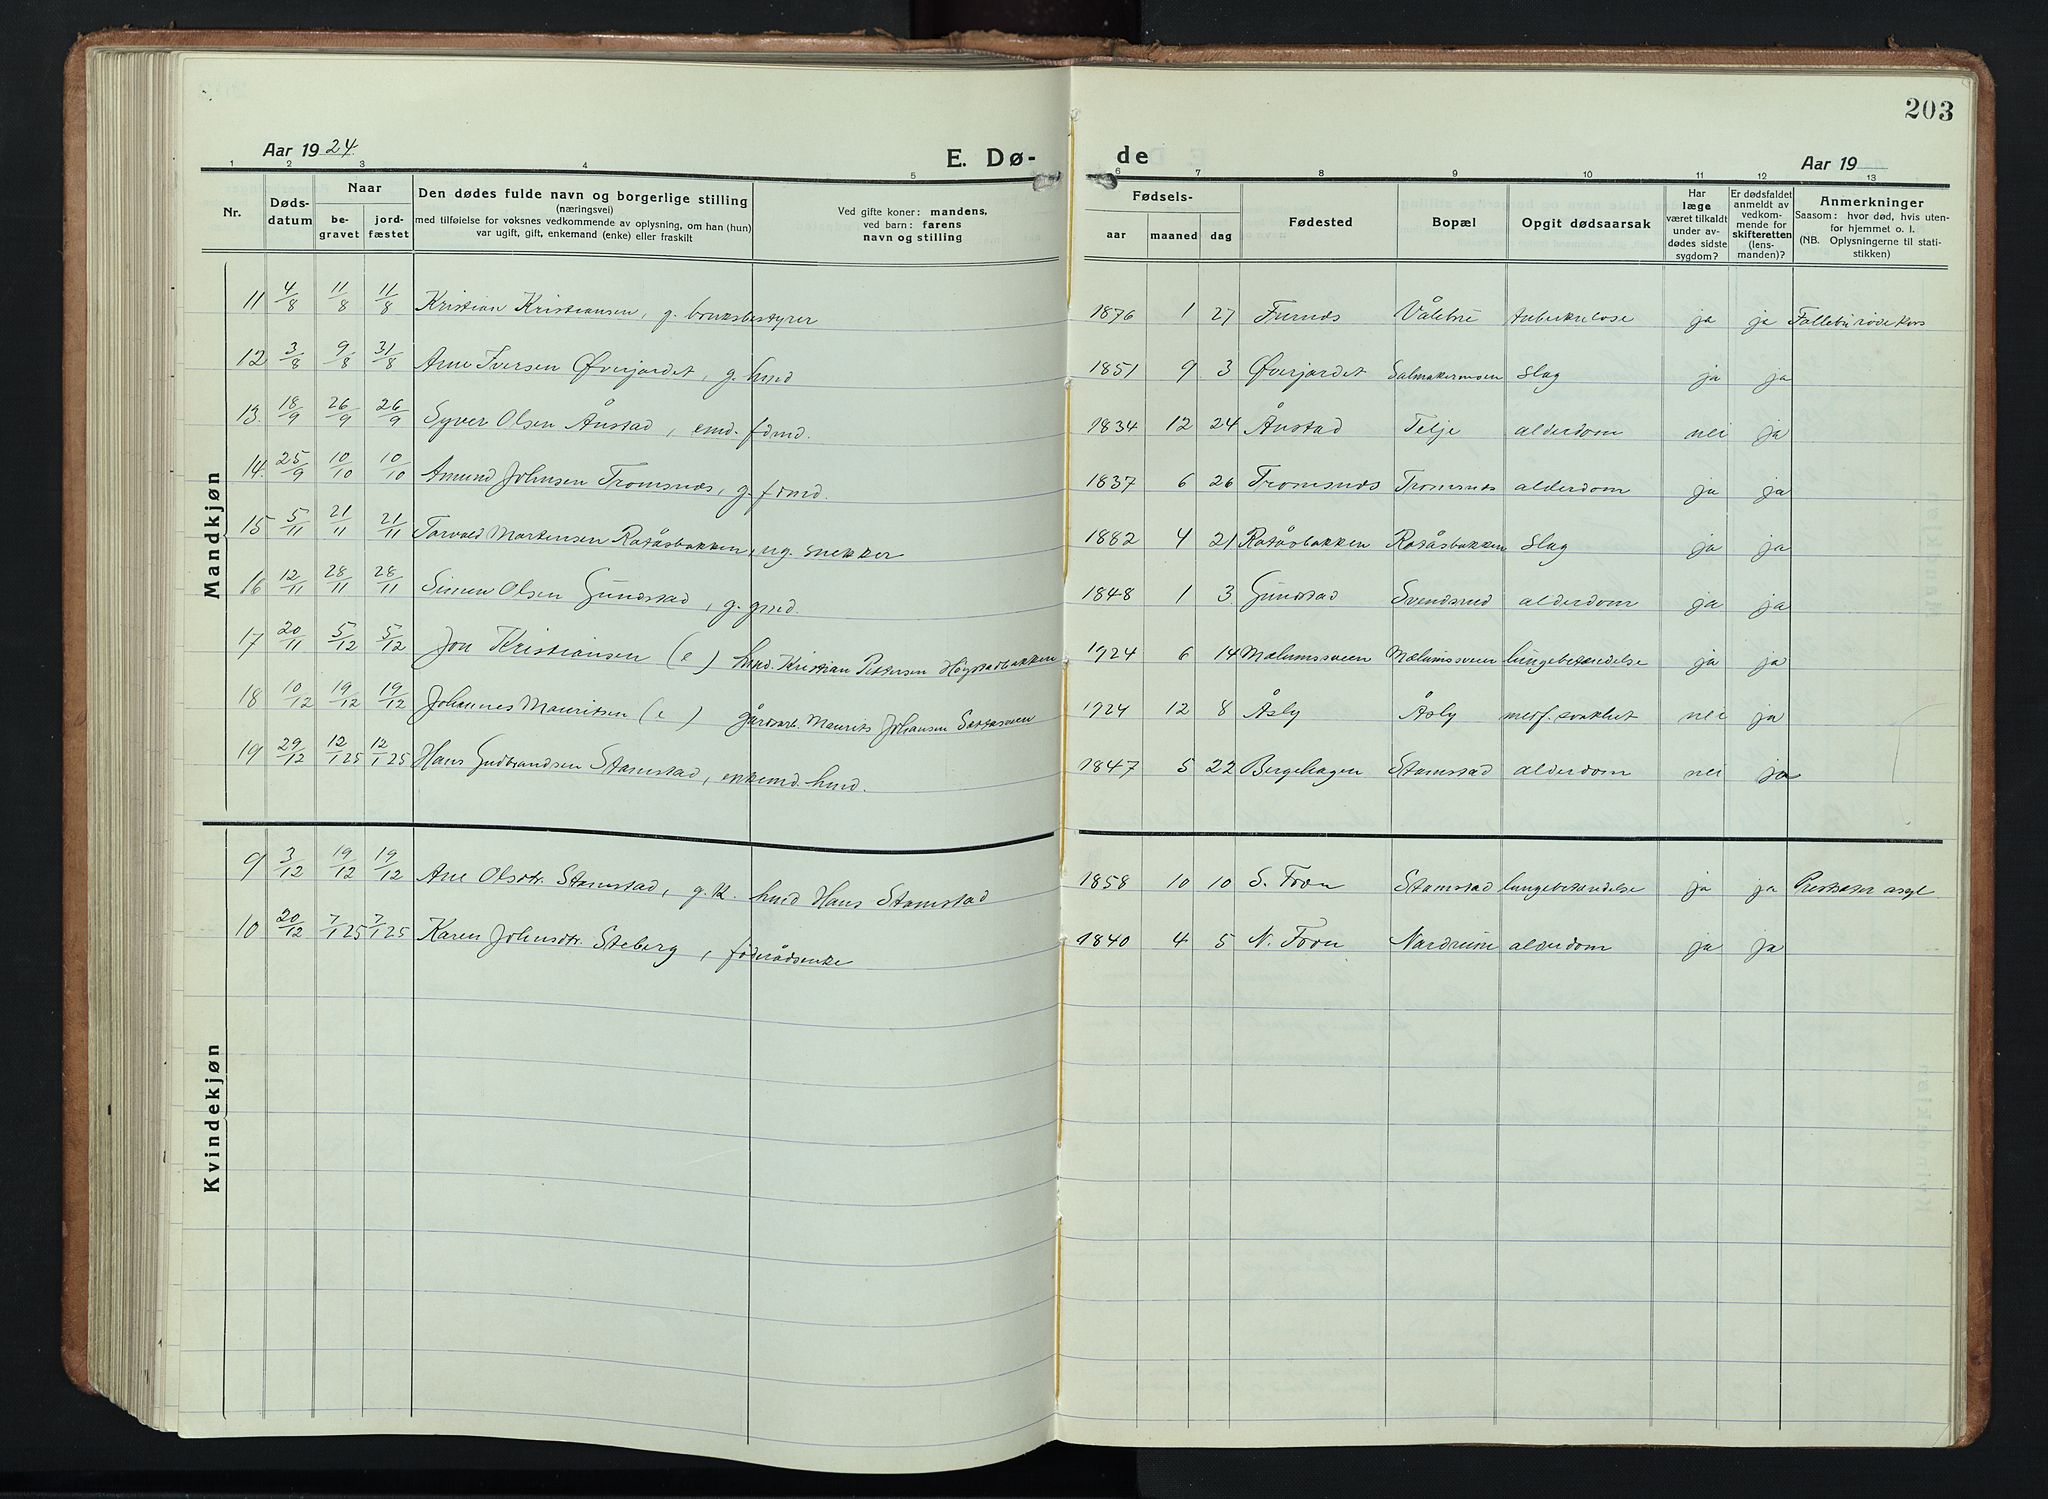 203
Aar 1924. E. Dø- de Aar 19
1 2 3 4 5 6 7 8 9 10 11 12 13
Nr. Døds-datum Naar be-gravet jord-fæstet Den dødes fulde navn og borgerlige stilling (næringsvei) med tilføielse for voksnes vedkommende av oplysning, om han (hun) var ugift, gift, enkemand (enke) eller fraskilt Ved gifte koner: mandens, ved barn: farens navn og stilling Fødsels- aar maaned dag Fødested Bopæl Opgit dødsaarsak Har læge været tilkaldt under av-dødes sidste sygdom? Er dødsfaldet anmeldt av vedkom-mende for skifteretten (lens-manden)? Anmerkninger Saasom: hvor død, hvis uten-for hjemmet o. l. (NB. Oplysningerne til stati-stikken)
Mandkjøn
11 4/8 11/8 11/8 Kristian Kristiansen, g. bruksbestyrer 1876 1 27 Furnes Vålebru tuberkulose ja ja Follebu røde kors
12 3/8 9/8 31/8 Arne Iversen Øverjordet, g. hmd 1851 9 3 Øverjordet Salmakermoen slag ja ja
13. 18/9 26/9 26/9 Syver Olsen Ånstad, emd. fdmd. 1834 12 24 Ånstad Telje alderdom nei ja
14. 25/9 10/10 10/10 Amund Johnsen Tromsnes, g. fdmd. 1837 6 26 Tromsnes Tromsnes alderdom ja ja
15 5/11 21/11 21/11 Torvald Martensen Rotåsbakken, ug. snekker 1882 4 21 Rotåsbakken Rotåsbakken slag ja ja
16 12/11 28/11 28/11 Simen Olsen Gunstad, g. gmd. 1848 1 3. Gunstad Svendsrud alderdom ja ja
17 20/11 5/12 5/12 Jon Kristiansen (e) hmd. Kristian Pettersen Høystadbakken 1924 6 14 Mælumssveen Mælumssveen lungebetændelse ja ja
18 10/12 19/12 19/12 Johannes Mauritsen (e) gårdarb. Maurits Johansen 1924 12 8 Åsly Åsly medf. svakhet nei ja
19 29/12 12/1 25 12/1 25 Hans Gudbrandsen Stamstad, enkemd. hmd. 1847 5 22 Bergehagen Stamstad alderdom nei ja
Kvindekjøn
9 3/12 19/12 19/12 Ane Olsdtr. Stamstad, g. k. hmd Hans Stamstad 1858 10 10 S. Fron Stamstad lungebetændelse ja ja asyl
10 20/12 7/1 25 7/1 25 Karen Johnsdtr. Steberg, føderådsenke 1840 4 5 N. Fron Nordrum alderdom ja ja